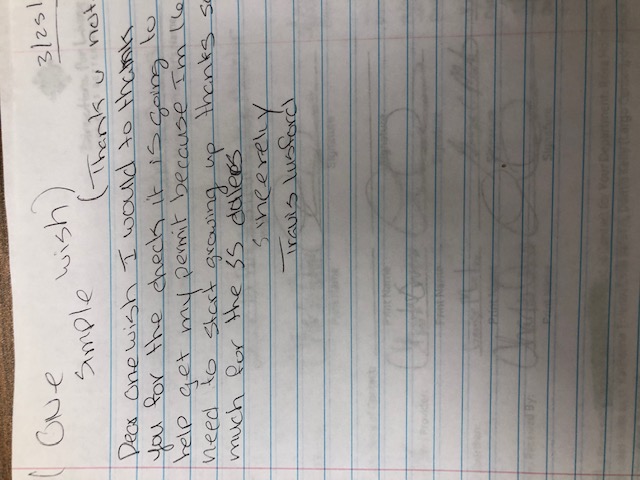 (One
Simple wish)
3/25/
(Thank u not
Dear one wish I would to thank
you for the check it is going to
help get my permit because I'm 16
need to start growing up thanks so
much for the 35 dollers
Sincerelly
Travis Lusford